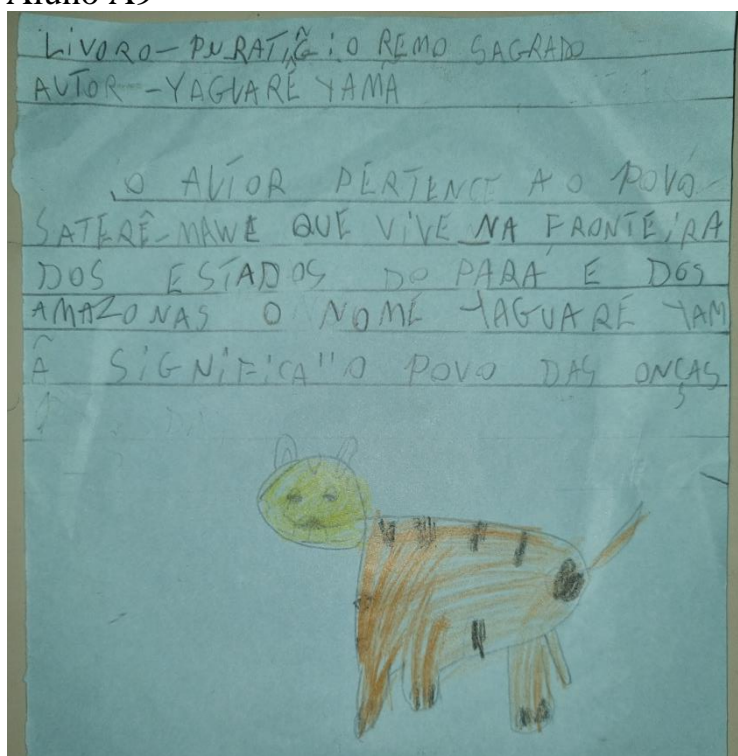 Aluno A9
LIVORO - PURATIG̃: O REMO SAGRADO
AUTOR - YAGUARÊ YAMÃ
O AUTOR PERTENCE AO POVO
SATERÊ-MAWE QUE VIVE NA FRONTEIRA
DOS ESTADOS DO PARÁ E DOS
AMAZONAS O NOME YAGUARÊ YAM
Ã SIGNIFICA "O POVO DAS ONÇAS